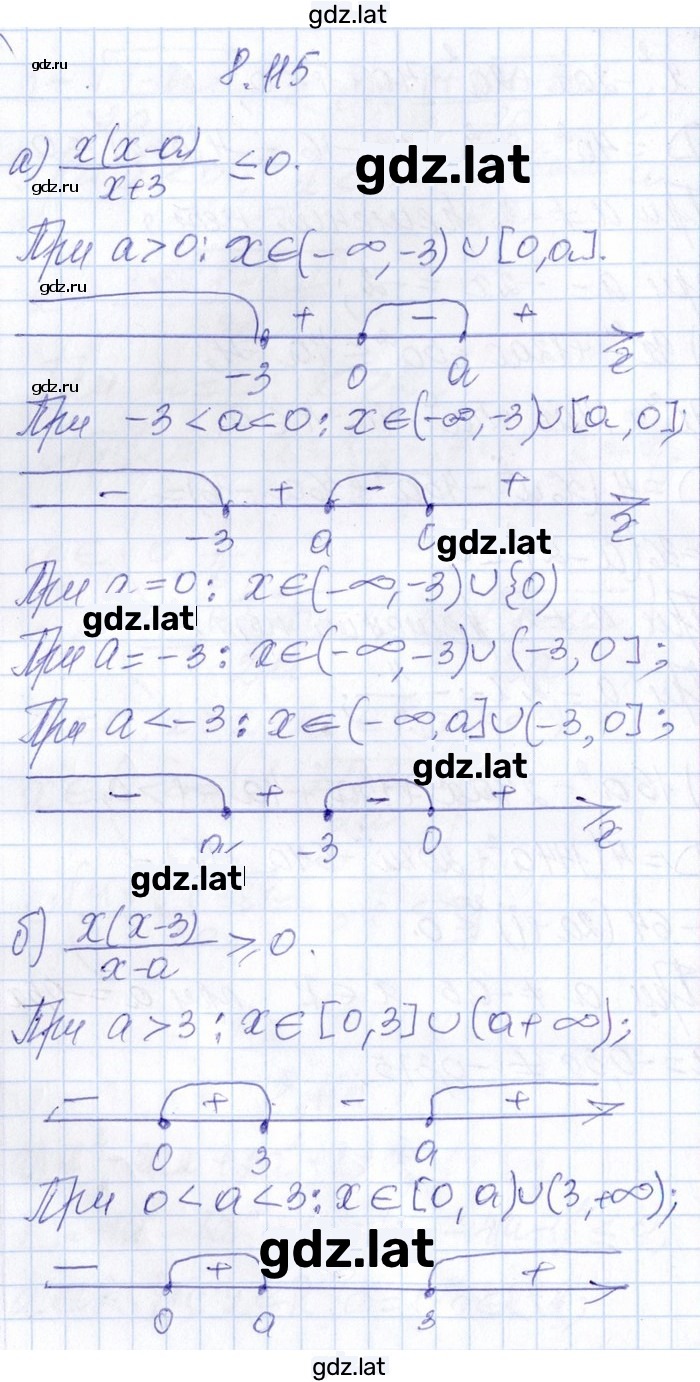 gdz.lat
gdz.ru
8.115
а) x(x-a)/x+3 ≤ 0.
gdz.ru
gdz.lat
При a>0: x∈(-∞,-3)∪[0,a].
gdz.ru
+ - +
-3 0 a x
gdz.ru
При -3<a<0: x∈(-∞,-3)∪[a,0];
- + - +
-3 a x
gdz.lat
При =0: x∈(-∞,-3)∪{0)
gdz.lat
При a=-3: x∈(-∞,-3)∪(-3,0];
При a<-3: x∈(-∞,a]∪(-3,0];
gdz.lat
- + - +
-3 0 x
gdz.lat
б) x(x-3)/x-a ≥ 0.
При a>3: x∈[0,3]∪(a+∞);
- + - +
0 3 a
При 0<a<3: x∈[0,a)∪(3,+∞);
gdz.lat
- + +
0 a 3
gdz.lat